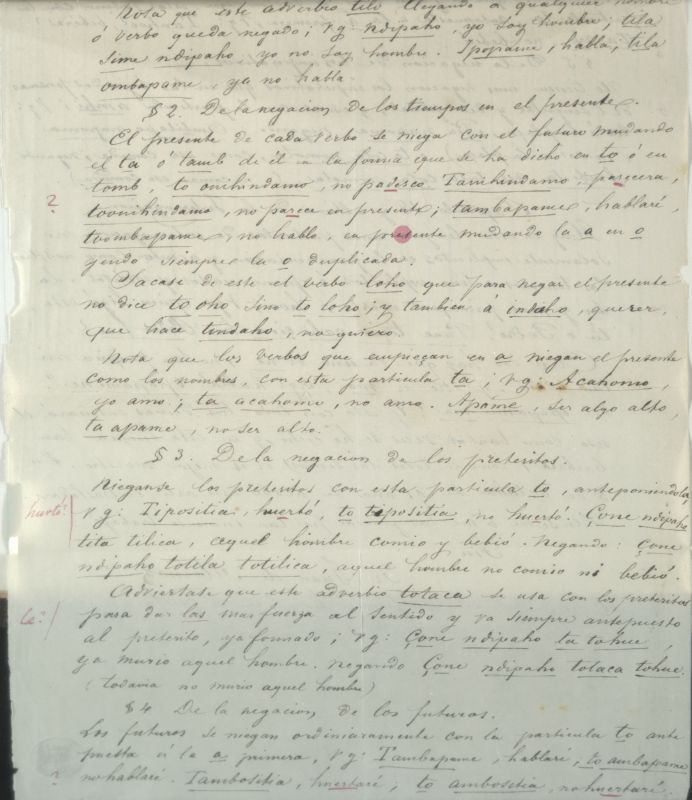 Nota que este adverbio tilo llegando a qualquier nombre
ó verbo queda negado; vg: ndipaho, yo soy hombre; tila
sime ndipaho yo no soy hombre. Ipopame, habla; tila
ombapame, ya no habla.
§ 2. De la negacion de los tiempos en el presente.
El presente de cada verbo se niega con el futuro mudando
el ta ó tamb de él en la forma que se ha dicho en to ó en
tomb, to onihindamo, no padesco Tanihindamo, parecera,
? toonihindamo, no parece en presente; tambapame, hablaré,
toombapame, no hablo, en presente mudando la a en o
yendo siempre la o duplicada.
Sacase de este el verbo loho que para negar el presente
no dice to oho sino to loho; y tambien á indaho, querer,
que hace tindaho, no quiero.
Nota que los verbos que empieçan en a niegan el presente
como los nombres, con esta particula ta; vg: Acahomo,
yo amo; ta acahome, no amo. Apame, ser algo alto,
ta apame, no ser alto.
§ 3. De la negacion de los preteritos.
Nieganse los preteritos con esta particula to, anteponiendola,
hurtó? vg: Tipositia, huertó, to tepositia, no huertó. Çone ndipaho
tita tilica, aquel hombre comio y bebió. Negando: Çone
ndipaho totila totilica, aquel hombre no comio ni bebió.
Adviertase que este adverbio totaca se usa con los preteritos
le? para dar las mas fuerza al sentido y va siempre antepuesto
al preterito, ya formado; vg: Çone ndipaho ta tohue,
ya murio aquel hombre. negando Çone ndipaho totaca tohue.
(todavia no murio aquel hombre)
§ 4 De la negacion de los futuros.
Los futuros se niegan ordinariamente con la particula to ante
puesta á la a primera, vg: Tambapame, hablaré, to ambapame
? no hablaré. Tambositia, huertaré, to ambositia, no huertaré.